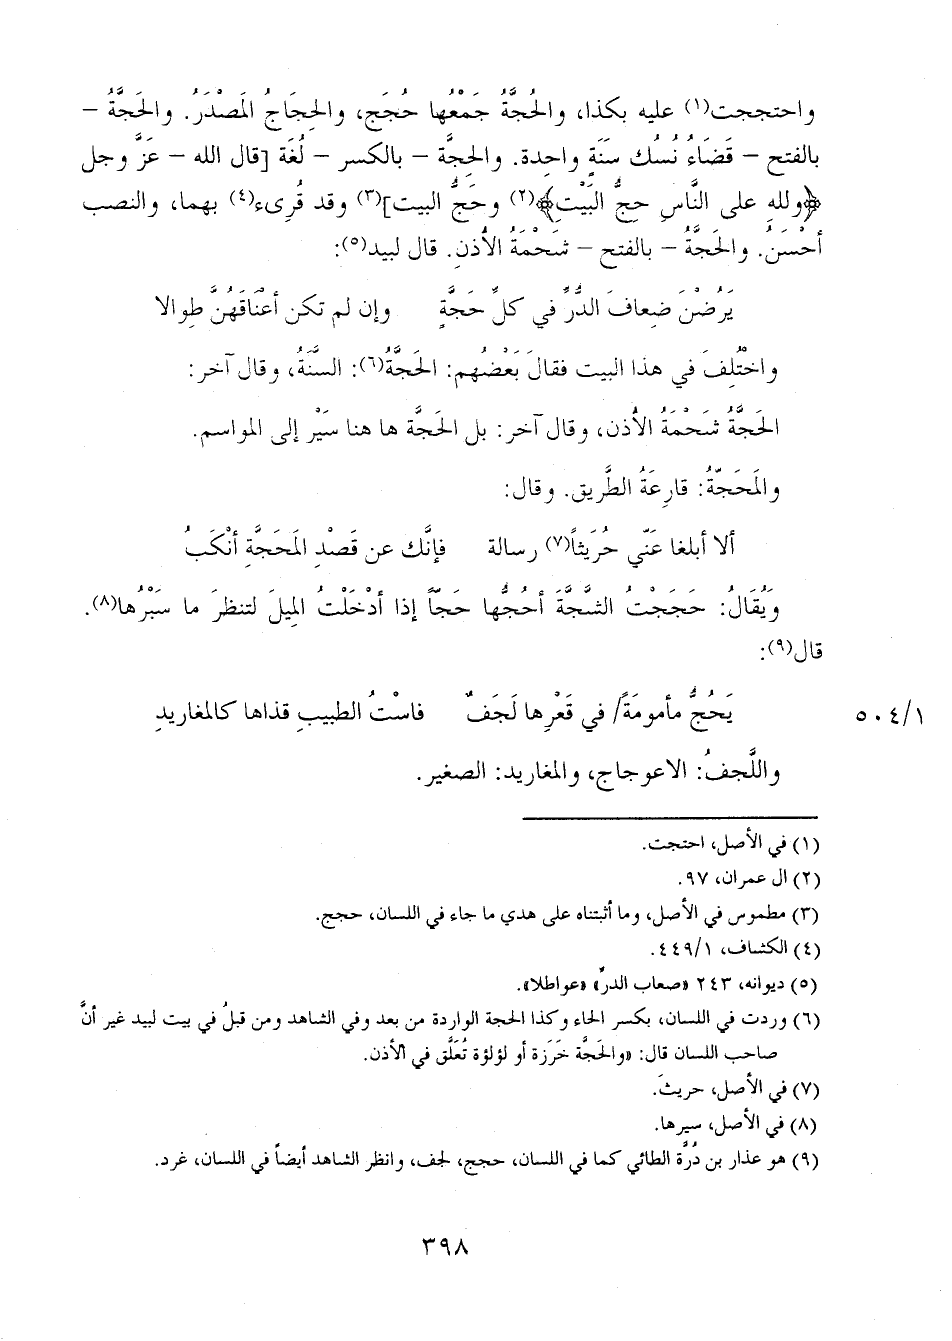 واحتججت(١) عليه بكذا، والحُجَّةُ جَمْعُها حُجَج، والحِجَاجُ المَصْدَرُ. والحَجَّةُ –
بالفتح – قَضَاءُ نُسُك سَنَةٍ واحِدة. والحِجَّة – بالكسر – لُغَة [قال الله – عَزَّ وجل
﴿وللهِ على النَّاسِ حِجُّ البَيْتِ﴾(٢) وحَجُّ البيت](٣) وقد قُرِىء(٤) بهما، والنصب
أحْسَنُ. والحَجَّةُ – بالفتح – شَحْمَةُ الأُذنِ. قال لبيد(٥):
يَرُضْنَ ضِعافَ الدُّرِّ في كلِّ حَجَّةٍ وإن لم تكن أعْنَاقَهُنَّ طِوالا
واخْتُلِفَ في هذا البيت فقالَ بَعْضُهم: الحَجَّةُ(٦): السَّنَةُ، وقال آخر:
الحَجَّةُ شَحْمَةُ الأُذن، وقال آخر: بل الحَجَّة ها هنا سَيْر إلى المواسم.
والمَحَجَّةُ: قارِعَةُ الطَّريق. وقال:
ألا أبلغا عَنّي حُرَيثاً(٧) رسالة فإنَّك عن قَصْدِ المَحَجَّةِ أنْكَبُ
ويُقَالُ: حَجَجْتُ الشَّجَّةَ أحُجُّها حَجّاً إذا أدْخَلْتُ المِيلَ لتنظرَ ما سَبْرُها(٨).
قال(٩):
يَحُجُّ مأمومَةً/ في قَعْرِها لَجَفٌ فاسْتُ الطبيبِ قذاها كالمغاريدِ
٥٠٤/١
واللَّجفُ: الاعوجاج، والمغاريد: الصغير.
(١) في الأصل، احتجت.
(٢) ال عمران، ٩٧.
(٣) مطموس في الأصل، وما أثبتناه على هدي ما جاء في اللسان، حجج.
(٤) الكشاف، ٤٤٩/١.
(٥) ديوانه، ٢٤٣ «صعاب الدرِّ» «عواطلا».
(٦) وردت في اللسان، بكسر الحاء وكذا الحجة الواردة من بعد وفي الشاهد ومن قبلُ في بيت لبيد غير أنَّ
صاحب اللسان قال: «والحَجَّة خَرَزة أو لؤلؤة تُعَلَّق في الأذن.
(٧) في الأصل، حريثَ.
(٨) في الأصل، سيرها.
(٩) هو عذار بن دُرَّة الطائي كما في اللسان، حجج، لجف، وانظر الشاهد أيضاً في اللسان، غرد.
٣٩٨